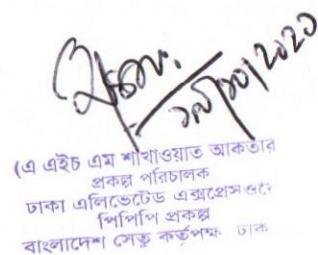 (এ এইচ এম শাখাওয়াত আকতার
প্রকল্প পরিচালক
ঢাকা এলিভেটেড এক্সপ্রেসওয়ে
পিপিপি প্রকল্প
বাংলাদেশ সেতু কর্তৃপক্ষ ঢাকা